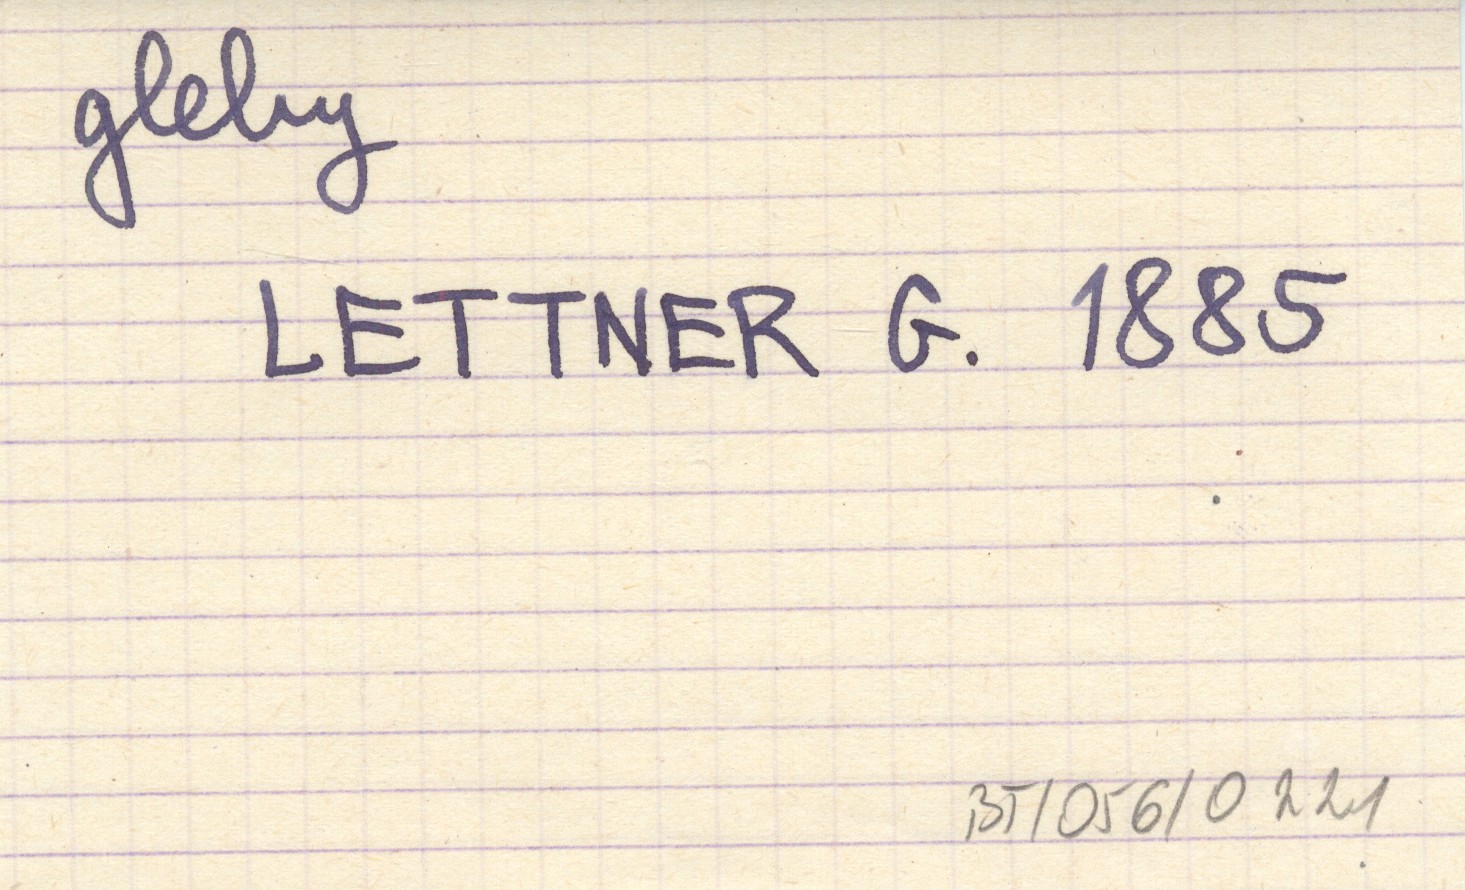 gleby
LETTNER G. 1885
BT/056/0221